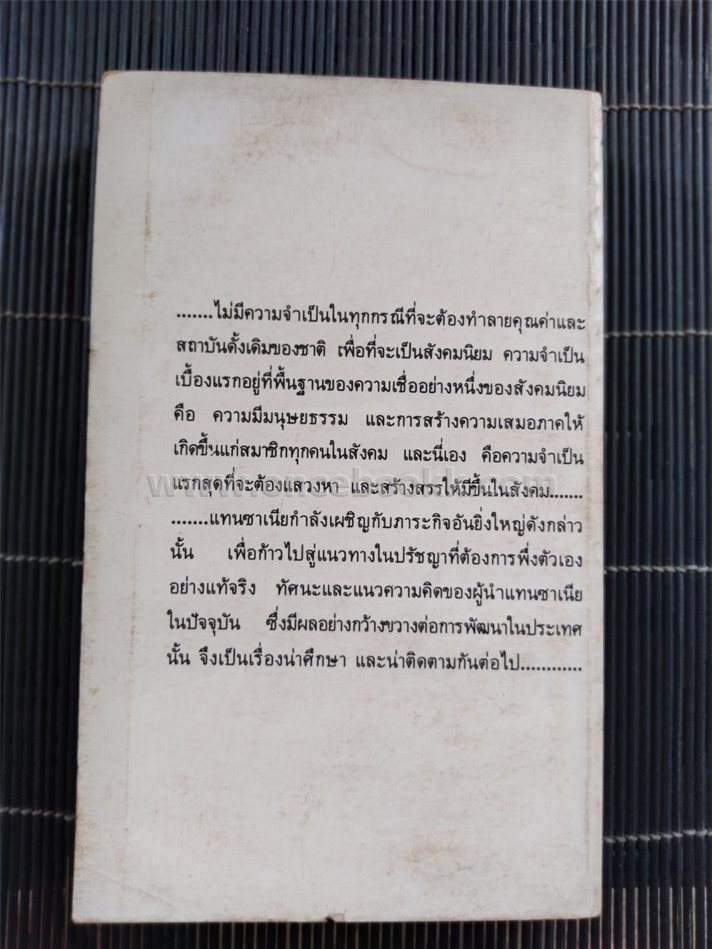 .......ไม่มีความจำเป็นในทุกกรณีที่จะต้องทำลายคุณค่าและ
สถาบันดั้งเดิมของชาติ เพื่อที่จะเป็นสังคมนิยม ความจำเป็น
เบื้องแรกอยู่ที่พื้นฐานของความเชื่ออย่างหนึ่งของสังคมนิยม
คือ ความมีมนุษยธรรม และการสร้างความเสมอภาคให้
เกิดขึ้นแก่สมาชิกทุกคนในสังคม และนี่เอง คือความจำเป็น
แรกสุดที่จะต้องแสวงหา และสร้างสรรให้มีขึ้นในสังคม.......
........แทนซาเนียกำลังเผชิญกับภาระกิจอันยิ่งใหญ่ดังกล่าว
นั้น เพื่อก้าวไปสู่แนวทางในปรัชญาที่ต้องการพึ่งตัวเอง
อย่างแท้จริง ทัศนะและแนวความคิดของผู้นำแทนซาเนีย
ในปัจจุบัน ซึ่งมีผลอย่างกว้างขวางต่อการพัฒนาในประเทศ
นั้น จึงเป็นเรื่องน่าศึกษา และน่าติดตามกันต่อไป............